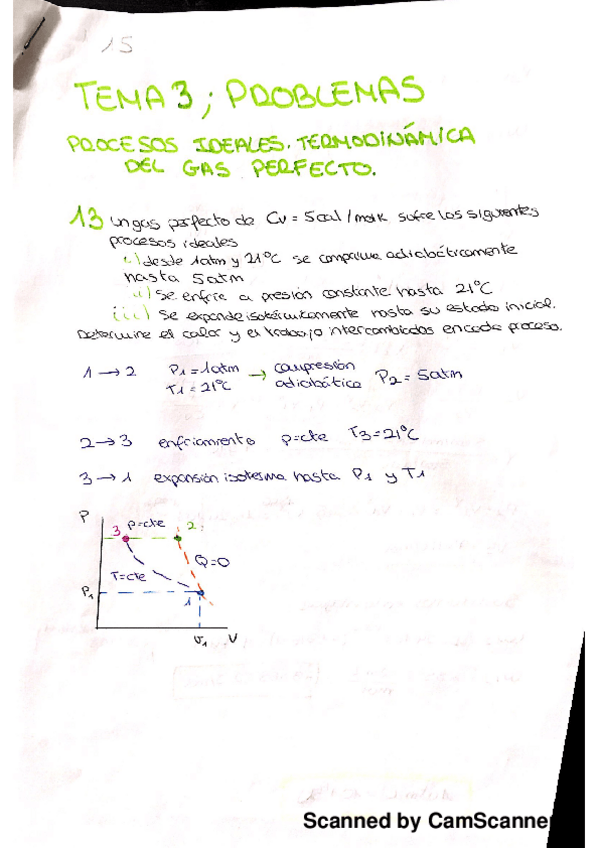 15
TEMA 3; PROBLEMAS
PROCESOS IDEALES. TERMODINÁMICA
DEL GAS PERFECTO.
13 Un gas perfecto de Cv = 5cal/molK sufre los siguientes
procesos ideales
i) desde 1atm y 21ºC se comprime adiabáticamente
hasta 5atm
ii) Se enfría a presión constante hasta 21ºC
iii) Se expande isotérmicamente hasta su estado inicial.
Determine el calor y el trabajo intercambiados en cada proceso.
1 → 2 P1 = 1atm → compresión P2 = 5atm
T1 = 21ºC adiabática
2 → 3 enfriamiento p=cte T3 = 21ºC
3 → 1 expansión isoterma hasta P1 y T1
P
3 p=cte 2
Q=0
T=cte
P1
1
V1 V
Scanned by CamScanne